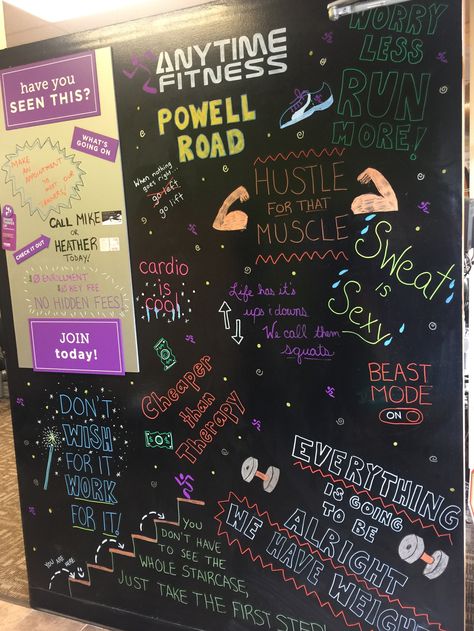 have you
SEEN THIS?
WHAT'S
GOING ON
MAKE AN
APPOINTMENT
TO
MEET OUR
TRAINERS!
CHECK IT OUT
CALL MIKE
or
HEATHER
TODAY!
$0 ENROLLMENT
$0 KEY FEE
NO HIDDEN FEES
JOIN
today!
ANYTIME
FITNESS
POWELL
ROAD
WORRY
LESS
RUN
MORE!
When nothing
goes right,
go left
go lift
HUSTLE
FOR THAT
MUSCLE
cardio
is
cool
Life has it's
ups & downs
We call them
squats
Sweat
is
Sexy
Cheaper
than
Therapy
BEAST
MODE
ON
DON'T
WISH
FOR IT
WORK
FOR IT!
EVERYTHING
IS GOING
TO BE
ALRIGHT
WE HAVE WEIGHTS
YOU ARE
HERE
YOU
DON'T HAVE
TO SEE THE
WHOLE STAIRCASE,
JUST TAKE THE FIRST STEP!